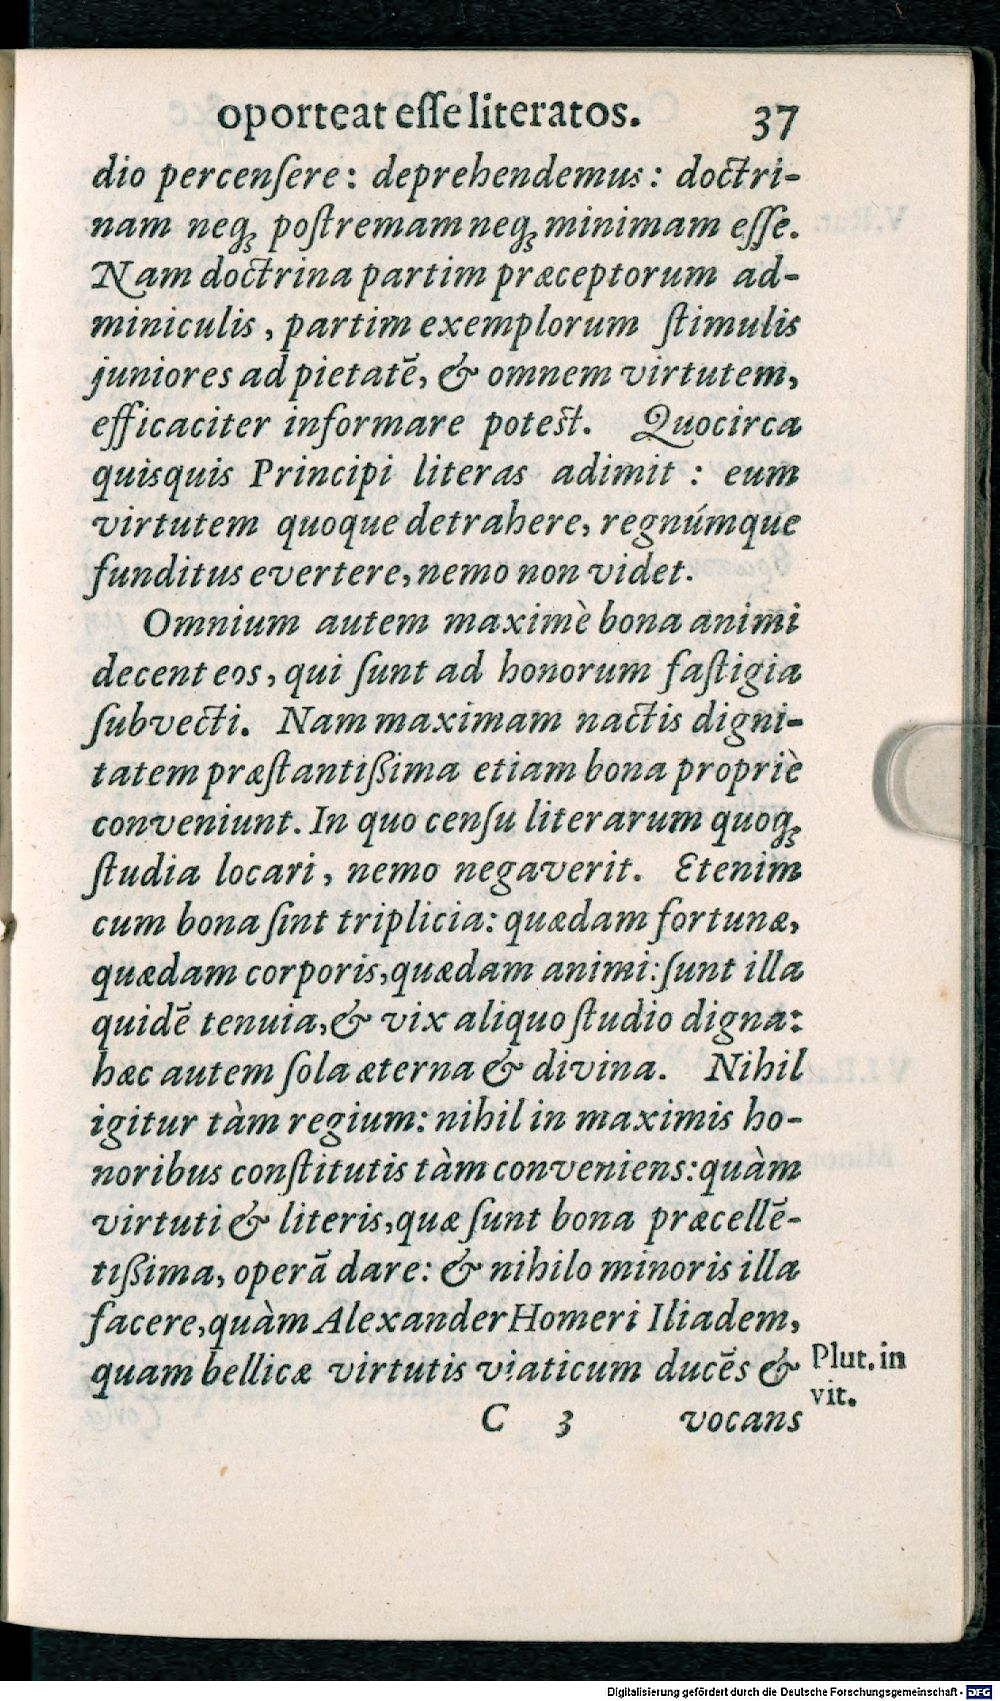 oporteat eſſe literatos. 37
dio percenſere: deprehendemus: doctri-
nam neq́ꝫ poſtremam neq́ꝫ minimam eſſe.
Nam doctrina partim præceptorum ad-
miniculis, partim exemplorum ſtimulis
juniores ad pietatē, & omnem virtutem,
efficaciter informare potest. Quocirca
quisquis Principi literas adimit: eum
virtutem quoque detrahere, regnúmque
funditus evertere, nemo non videt.
Omnium autem maximè bona animi
decent eos, qui ſunt ad honorum faſtigia
ſubvecti. Nam maximam nactis digni-
tatem præſtantißima etiam bona propriè
conveniunt. In quo cenſu literarum quoq́ꝫ
ſtudia locari, nemo negaverit. Etenim
cum bona ſint triplicia: quædam fortunæ,
quædam corporis, quædam animi: ſunt illa
quidē tenuia, & vix aliquo ſtudio digna:
hæc autem ſola æterna & divina. Nihil
igitur tàm regium: nihil in maximis ho-
noribus conſtitutis tàm conveniens: quàm
virtuti & literis, quæ ſunt bona præcellē-
tißima, operā dare: & nihilo minoris illa
facere, quàm Alexander Homeri Iliadem,
quam bellicæ virtutis viaticum ducēs &
Plut. in
vit.
C 3 vocans
Digitalisierung gefördert durch die Deutsche Forschungsgemeinschaft - DFG